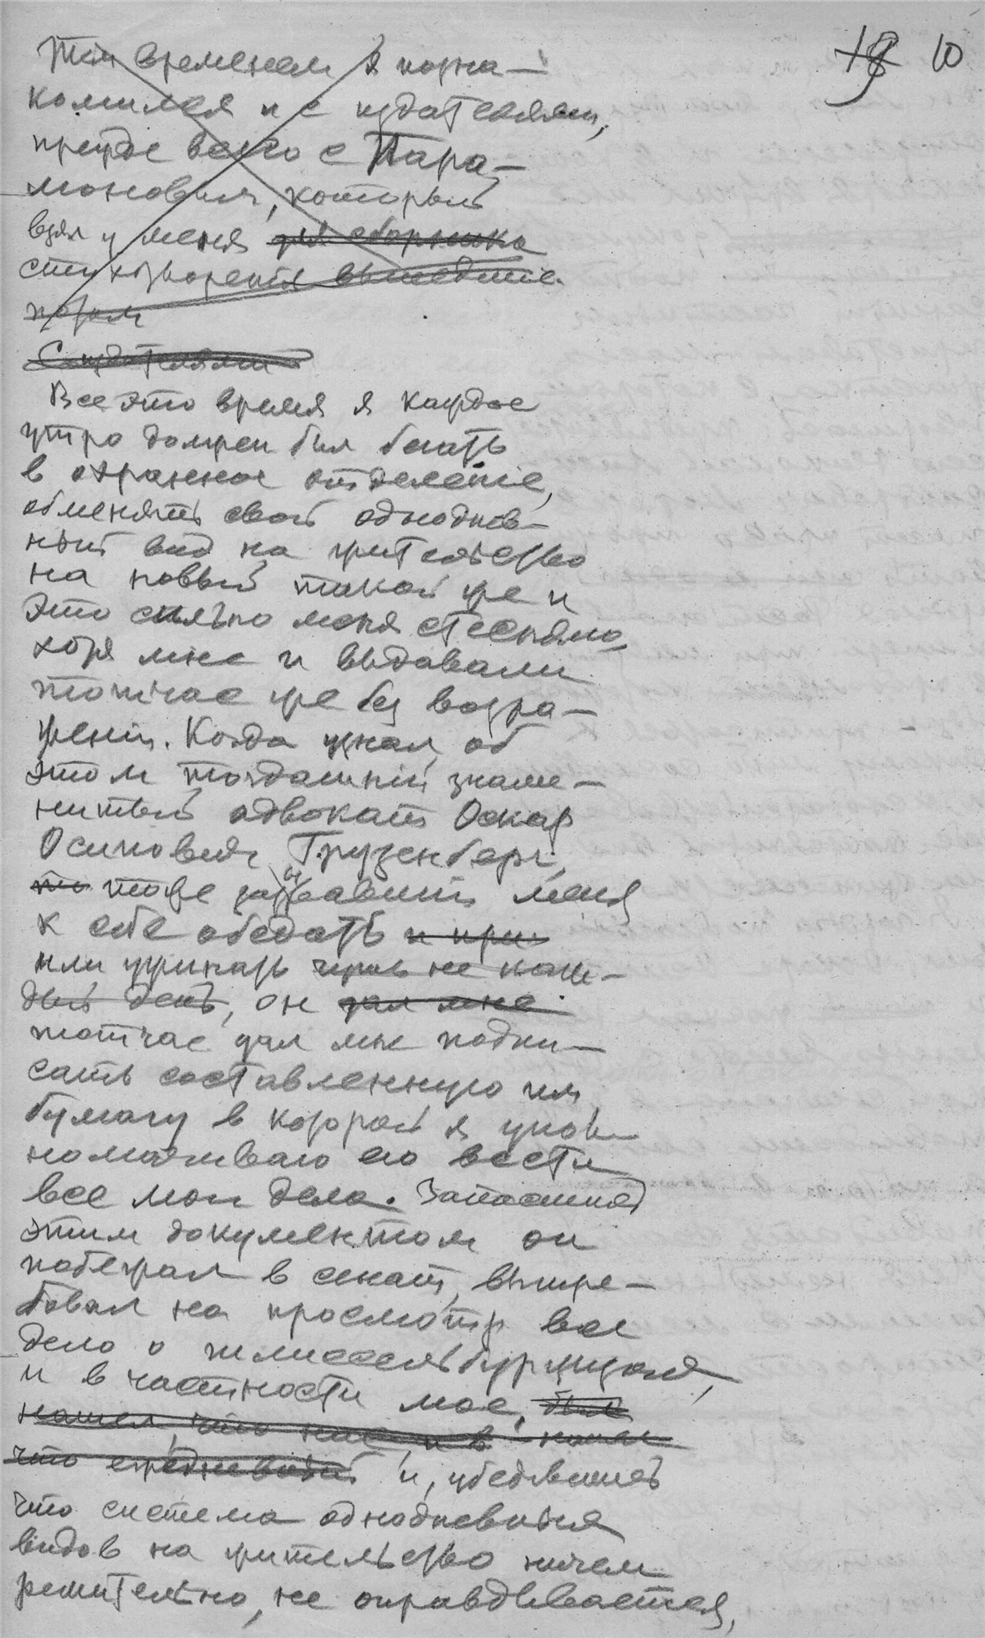 18 10
Тем временем я позна-
комился и с издателями,
прежде всего с Пара-
моновым, который
взял у меня для сборника
стихотворения вышедшие
позем
С издателями
Все это время я каждое
утро должен был бегать
в охранное отделение,
обменять свой одноднев-
ный вид на жительство
на новый такой же и
это сильно меня стесняло,
хотя мне и выдавали
тотчас же без возра-
жений. Когда узнал об
этом тогдашний знаме-
нитый адвокат Оскар
Осипович Грузенберг,
то тоже зазывавший меня
к себе обедать и при
или ужинать чуть не каж-
дый день, он дал мне
тотчас дал мне подпи-
сать составленную им
бумагу в которой я упол-
номачиваю его вести
все мои дела. Запасшись
этим документом он
побежал в сенат, вытре-
бовал на просмотр все
дело о шлиссельбуржцах,
и в частности мое, был
нашел, что нас и в
что ежедневный и, убедившись
что система однодневных
видов на жительство ничем
решительно, не оправдывается,